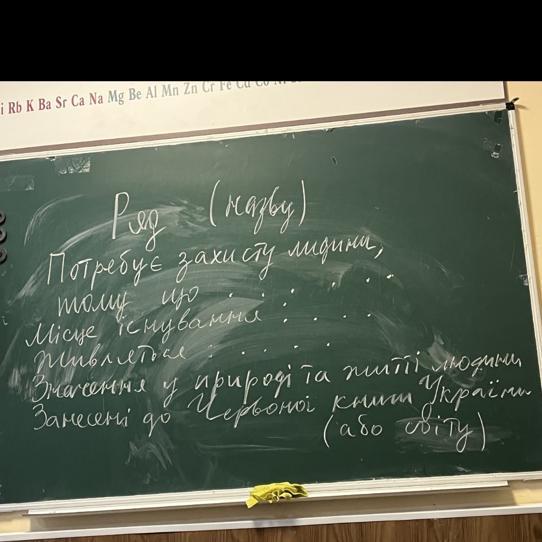 i Rb K Ba Sr Ca Na Mg Be Al Mn Zn Cr Fe Cd Co Ni
Ряд (назву)
Потребує захисту людини,
тому що . . : . . .
Місце існування : . . .
Живляться : . . . .
Значення у природі та житті людини
Занесені до Червоної книги України
(або світу)